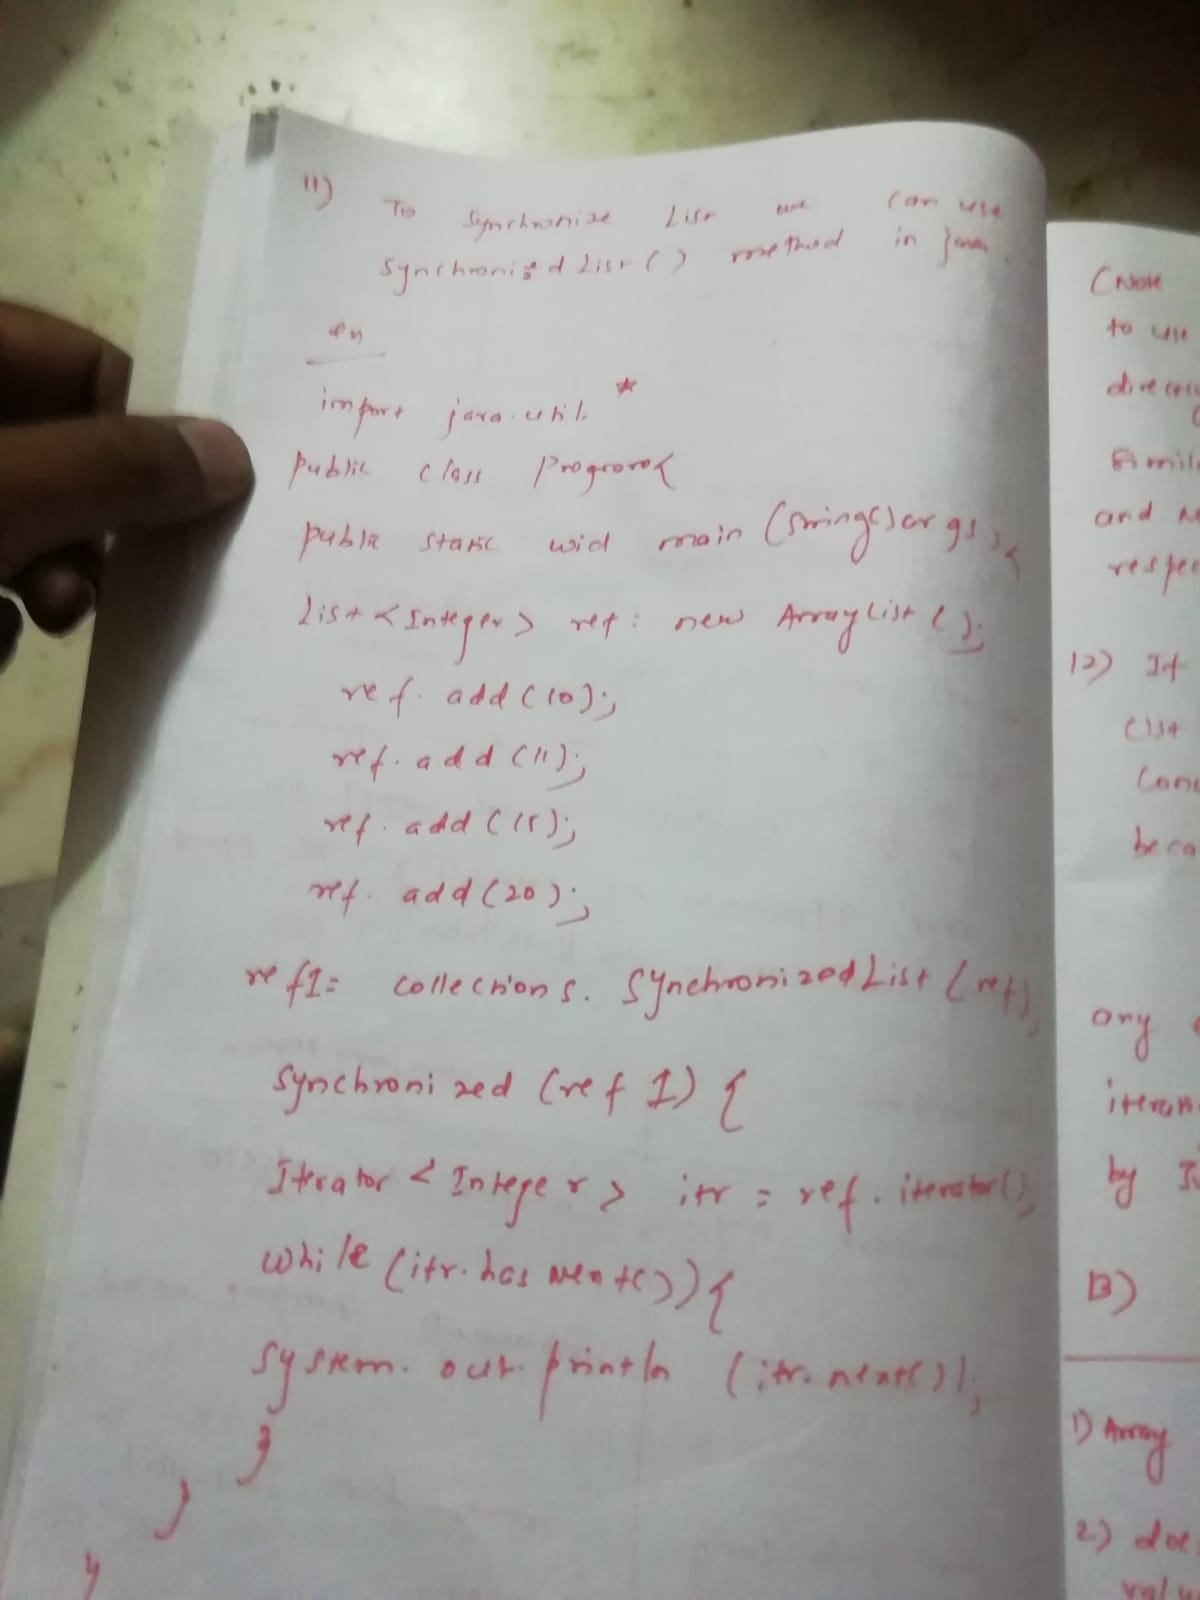 11) To Synchronize List we can use
Synchronized List () method in java.
ex
import java.util. *
public class program{
public static void main (String[] args) {
List <Integer> ref = new ArrayList ();
ref. add (10);
ref. add (11);
ref. add (15);
ref. add (20);
ref1= collections. SynchronizedList (ref);
Synchronized (ref 1) {
Iterator < Integer > itr = ref. iterator();
while (itr. has Next()) {
System. out. println (itr. next());
}
}
}
(Note
to use
directly
Simil
and
respec
12) If
List
Conc
beca
any
iterat
by
13)
1) Array
2) doe
valu